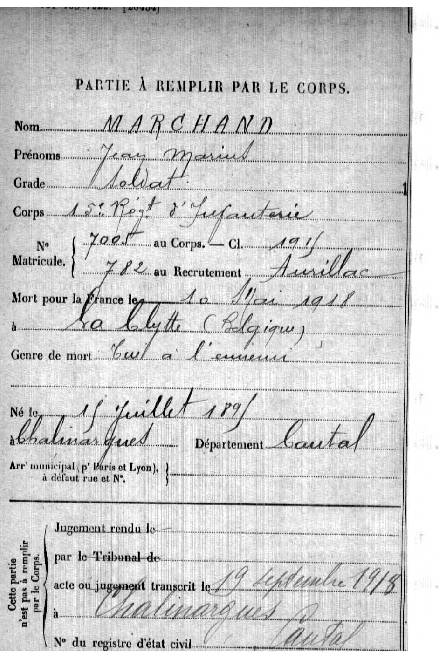 PARTIE À REMPLIR PAR LE CORPS.
Nom MARCHAND
Prénoms Jean Marius
Grade Soldat
1
Corps 15e Régt d'Infanterie
N° Matricule. { 7005 au Corps. — Cl. 1915
782 au Recrutement Aurillac
Mort pour la France le 10 Mai 1918
à La Clytte (Belgique)
Genre de mort Tué à l'ennemi
Né le 15 Juillet 1895
à Chalinargues Département Cantal
Arrt municipal (pr Paris et Lyon),
à défaut rue et N°.
Cette partie n'est pas à remplir par le Corps.
Jugement rendu le
par le Tribunal de
acte ou jugement transcrit le 19 septembre 1918
à Chalinargues
Cantal
N° du registre d'état civil